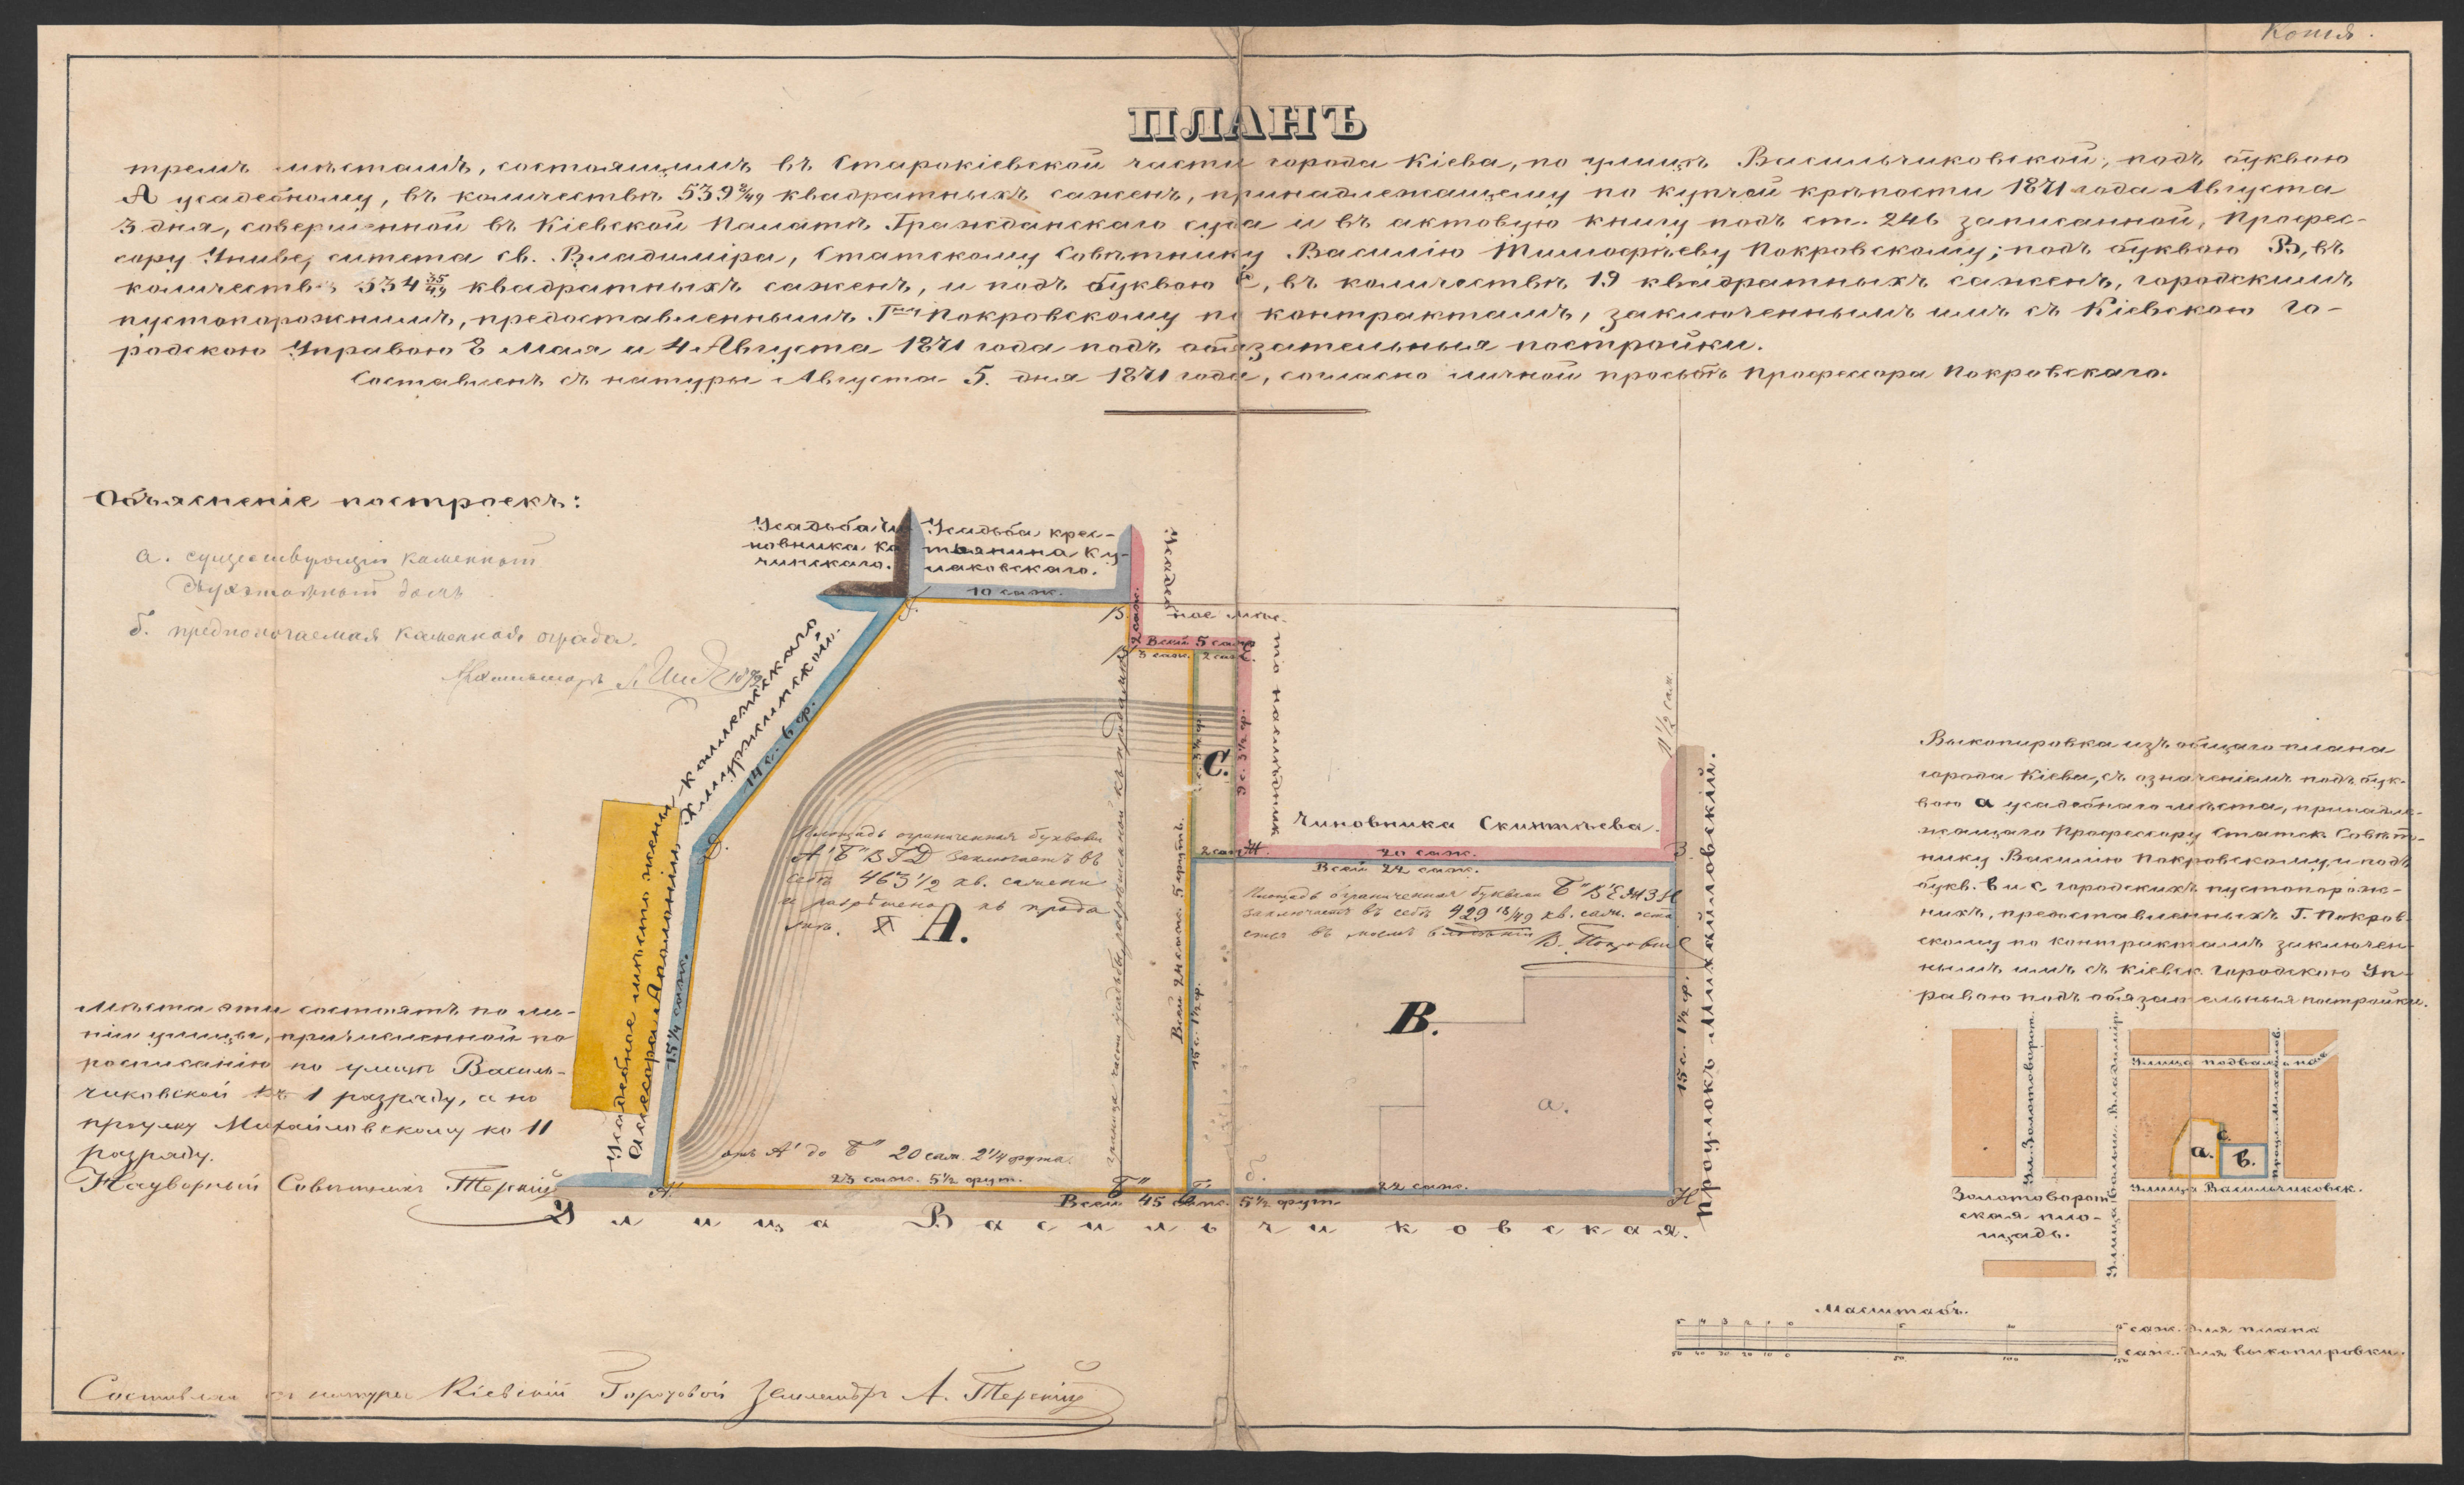 Копія.
ПЛАНЪ
тремъ мѣстамъ, состоящимъ въ Старокіевской части города Кіева, по улицѣ Васильчиковской, подъ буквою
А усадебному, въ количествѣ 539 2/49 квадратныхъ саженъ, принадлежащему по купчей крѣпости 1871 года Августа
3 дня, совершенной въ Кіевской Палатѣ Гражданскаго суда и въ актовую книгу подъ ст. 246 записанной, Профес-
сору Университета св. Владиміра, Статскому Совѣтнику Василію Тимофѣеву Покровскому; подъ буквою В, въ
количествѣ 334 35/49 квадратныхъ саженъ, и подъ буквою С, въ количествѣ 19 квадратныхъ саженъ, городскимъ
пустопорожнимъ, предоставленнымъ Гну Покровскому по контрактамъ, заключеннымъ имъ съ Кіевскою Го-
родскою Управою 8 Мая и 4 Августа 1871 года подъ обязательныя постройки.
Составленъ съ натуры Августа 5. дня 1871 года, согласно личной просьбѣ Профессора Покровскаго.
Объясненіе построекъ:
а. существующій каменный
двухэтажный домъ
б. предполагаемая каменная ограда.
Усадьба чи-
новника Ко-
чинскаго.
Усадьба крес-
тьянина Ку-
лаковскаго.
10 саж.
Г.
В.
2 саж.
Усадеб
ное мѣс-
то наслѣдник
Чиновника Скинтѣева.
Всей 5 саж.
3 саж.
2 саж.
9 с. 3½ ф.
9 с. 3½ ф.
С.
2 саж.
Ж.
20 саж.
З.
Всей 22 саж.
1½ саж.
Усадебное мѣсто жены Коллежскаго
Ассесора Аполоніи
14 с. 6 ф.
Д.
15¼ саж.
Площадь ограниченная буквами
А' Б" В Г Д заключаетъ въ
себѣ 463½ кв. сажени
и разрѣшена къ прода
жѣ.
А.
граница части усадьбы, разрѣшенной къ продажѣ
Всей 24 саж. 5 футъ.
15 с. 1½ ф.
Площадь ограниченная буквами Б" В' Е Ж З И
заключаетъ въ себѣ 429 18/49 кв. саж. оста
ется въ моемъ владѣніи
В. Покровскій
В.
а.
б.
15 с. 1½ ф.
Проулокъ Михайловскій.
отъ А' до Б" 20 саж. 2¼ фута.
23 саж. 5½ фут.
22 саж.
А'
Б"
Б'
И
Всей 45 саж. 5½ фут.
Улица Васильчиковская.
Мѣста эти состоятъ по ли-
ніи улицы, причисленной по
росписанію по улицѣ Василь-
чиковской къ 1 разряду, а по
проулку Михайловскому ко 11
разряду.
Надворный Совѣтникъ Терскій
Выкопировка изъ общаго плана
города Кіева, съ означеніемъ подъ бук-
вою а усадебнаго мѣста, принадле-
жащаго Профессору Статск. Совѣт-
нику Василію Покровскому, и подъ
букв. в и с городскихъ пустопорож-
нихъ, предоставленныхъ Г. Покров-
скому по контрактамъ заключен-
нымъ имъ съ Кіевск. Городскою Уп-
равою подъ обязательныя постройки.
Ул. Золотоворот.
Улица Больш. Владимір.
Улица подвальная
проул. Михайлов.
а.
с.
в.
Улица Васильчиковск.
Золотоворот-
ская пло-
щадь.
Масштабъ.
5 4 3 2 1 0 5 10 15 саж. для плана
50 40 30 20 10 0 50 100 150 саж. для выкопировки.
Составлялъ съ натуры Кіевскій Городовой Землемѣръ А. Терскій